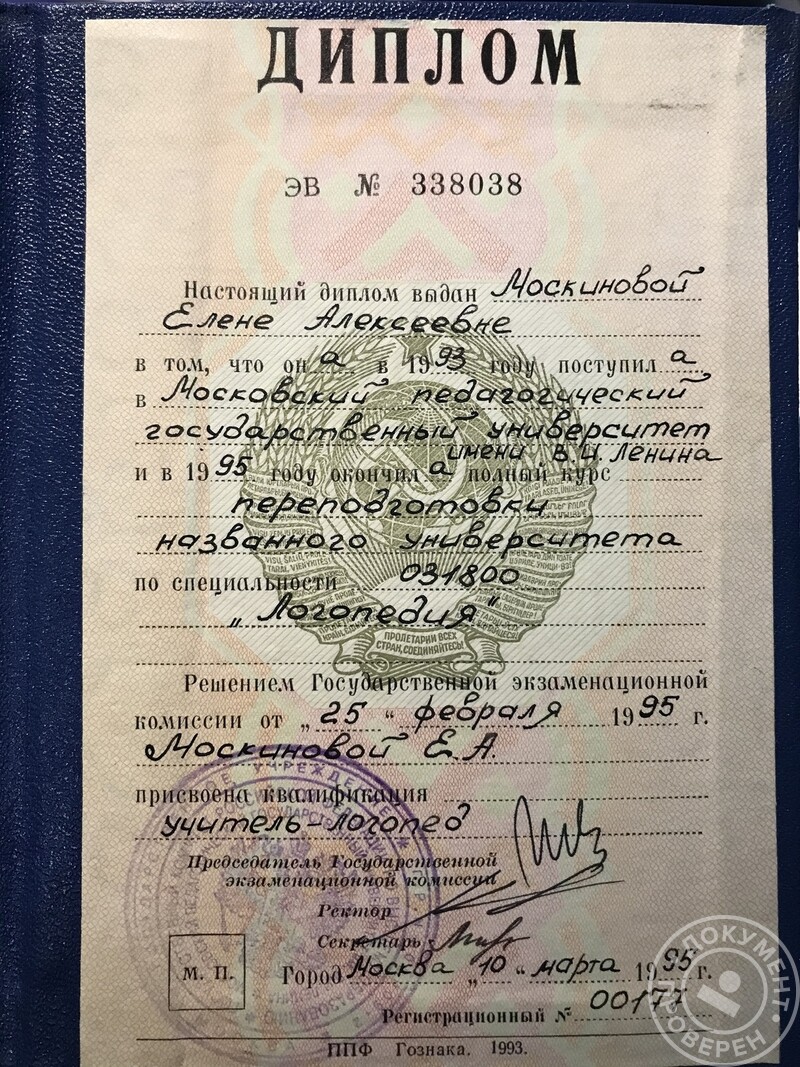 ДИПЛОМ
ЭВ № 338038
Настоящий диплом выдан Москиновой
Елене Алексеевне
в том, что он а в 1993 году поступил а
в Московский педагогический
государственный университет
имени В.И. Ленина
и в 1995 году окончил а полный курс
переподготовки
названного университета
по специальности 031800
„Логопедия"
ПРОЛЕТАРИИ ВСЕХ
СТРАН, СОЕДИНЯЙТЕСЬ!
Решением Государственной экзаменационной
комиссии от „25" февраля 1995 г.
Москиновой Е.А.
присвоена квалификация
учитель-логопед
Председатель Государственной
экзаменационной комиссии
Ректор
Секретарь
М. П.
Город Москва „10" марта 1995 г.
Регистрационный № 00177
ППФ Гознака. 1993.
ДОКУМЕНТ
ПРОВЕРЕН